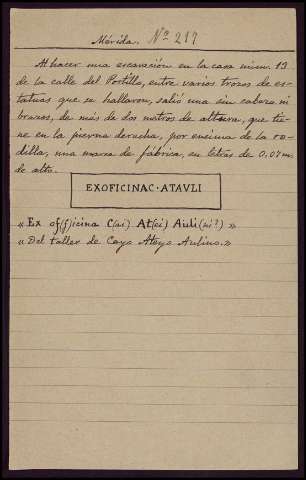 Mérida. Nº 217
Al hacer una escavación en la casa núm. 13
de la calle del Portillo, entre varios trozos de es-
tatuas que se hallaron, salió una sin cabeza ni
brazos, de más de dos metros de altura, que tie-
ne en la pierna derecha, por encima de la ro-
dilla, una marca de fábrica, en letras de 0.07m.
de alto.
EXOFICINAC·ATAVLI
«Ex of(f)icina C(ai) At(ei) Auli(ni?)»
«Del taller de Cayo Ateyo Aulino.»